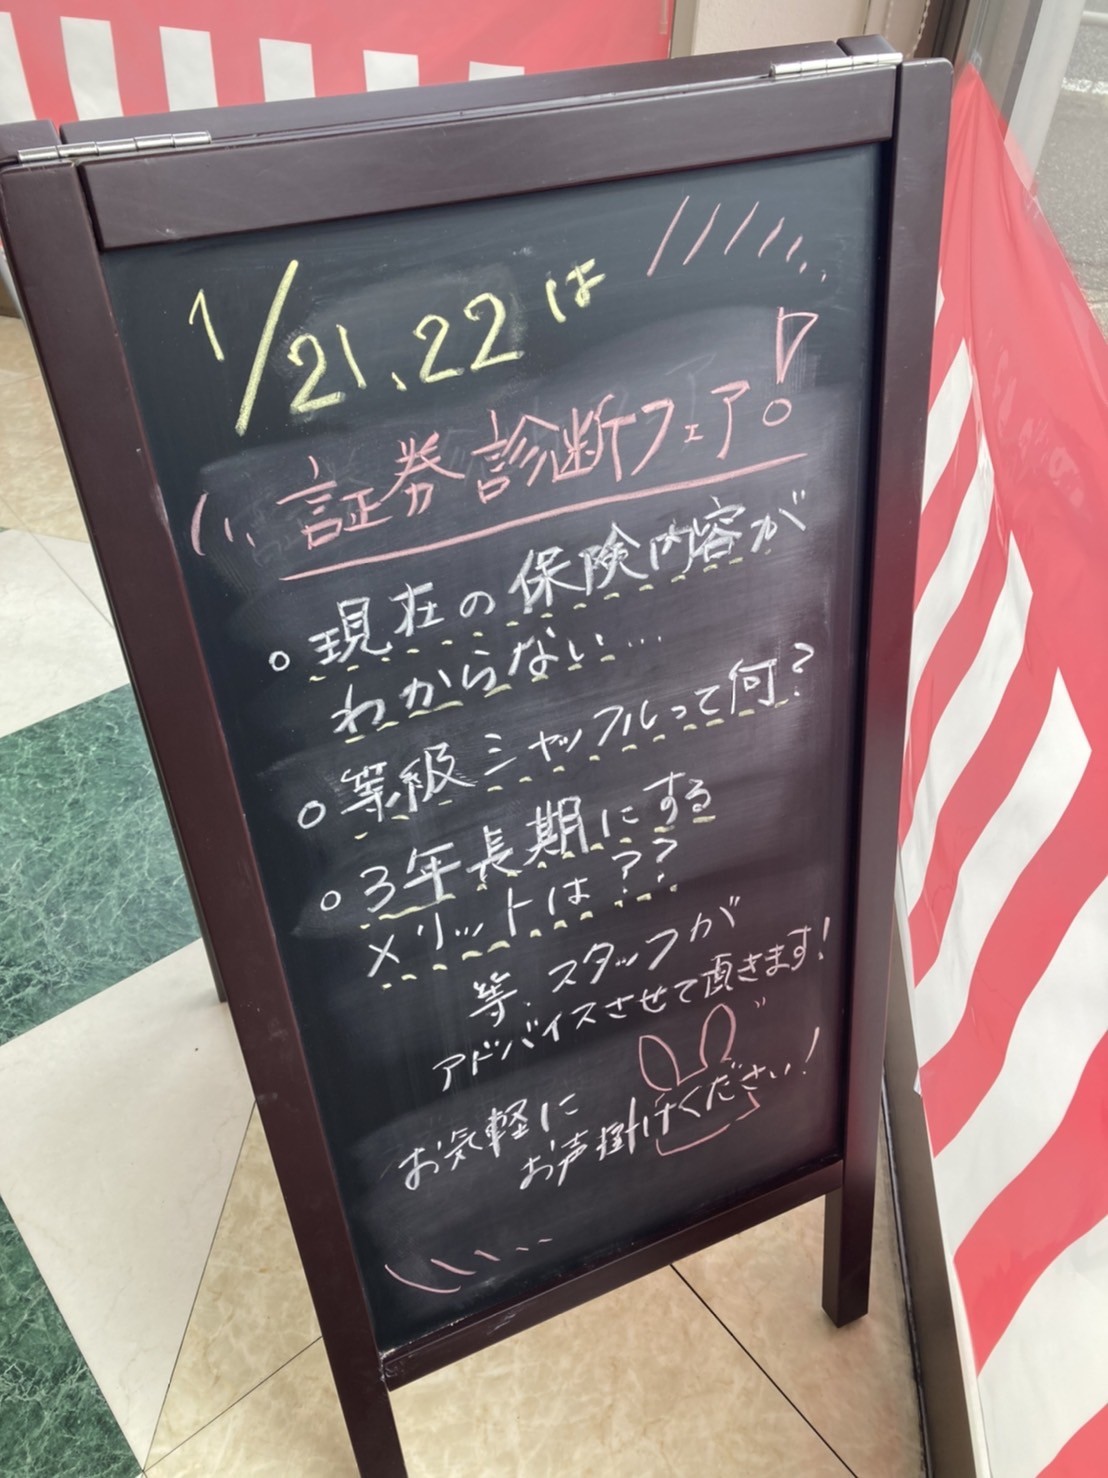 1/21、22は
証券診断フェア!
○ 現在の保険内容が
わからない…
○ 等級シャッフルって何?
○ 3年長期にする
メリットは??
等、スタッフが
アドバイスさせて頂きます!
お気軽に
お声掛けください!